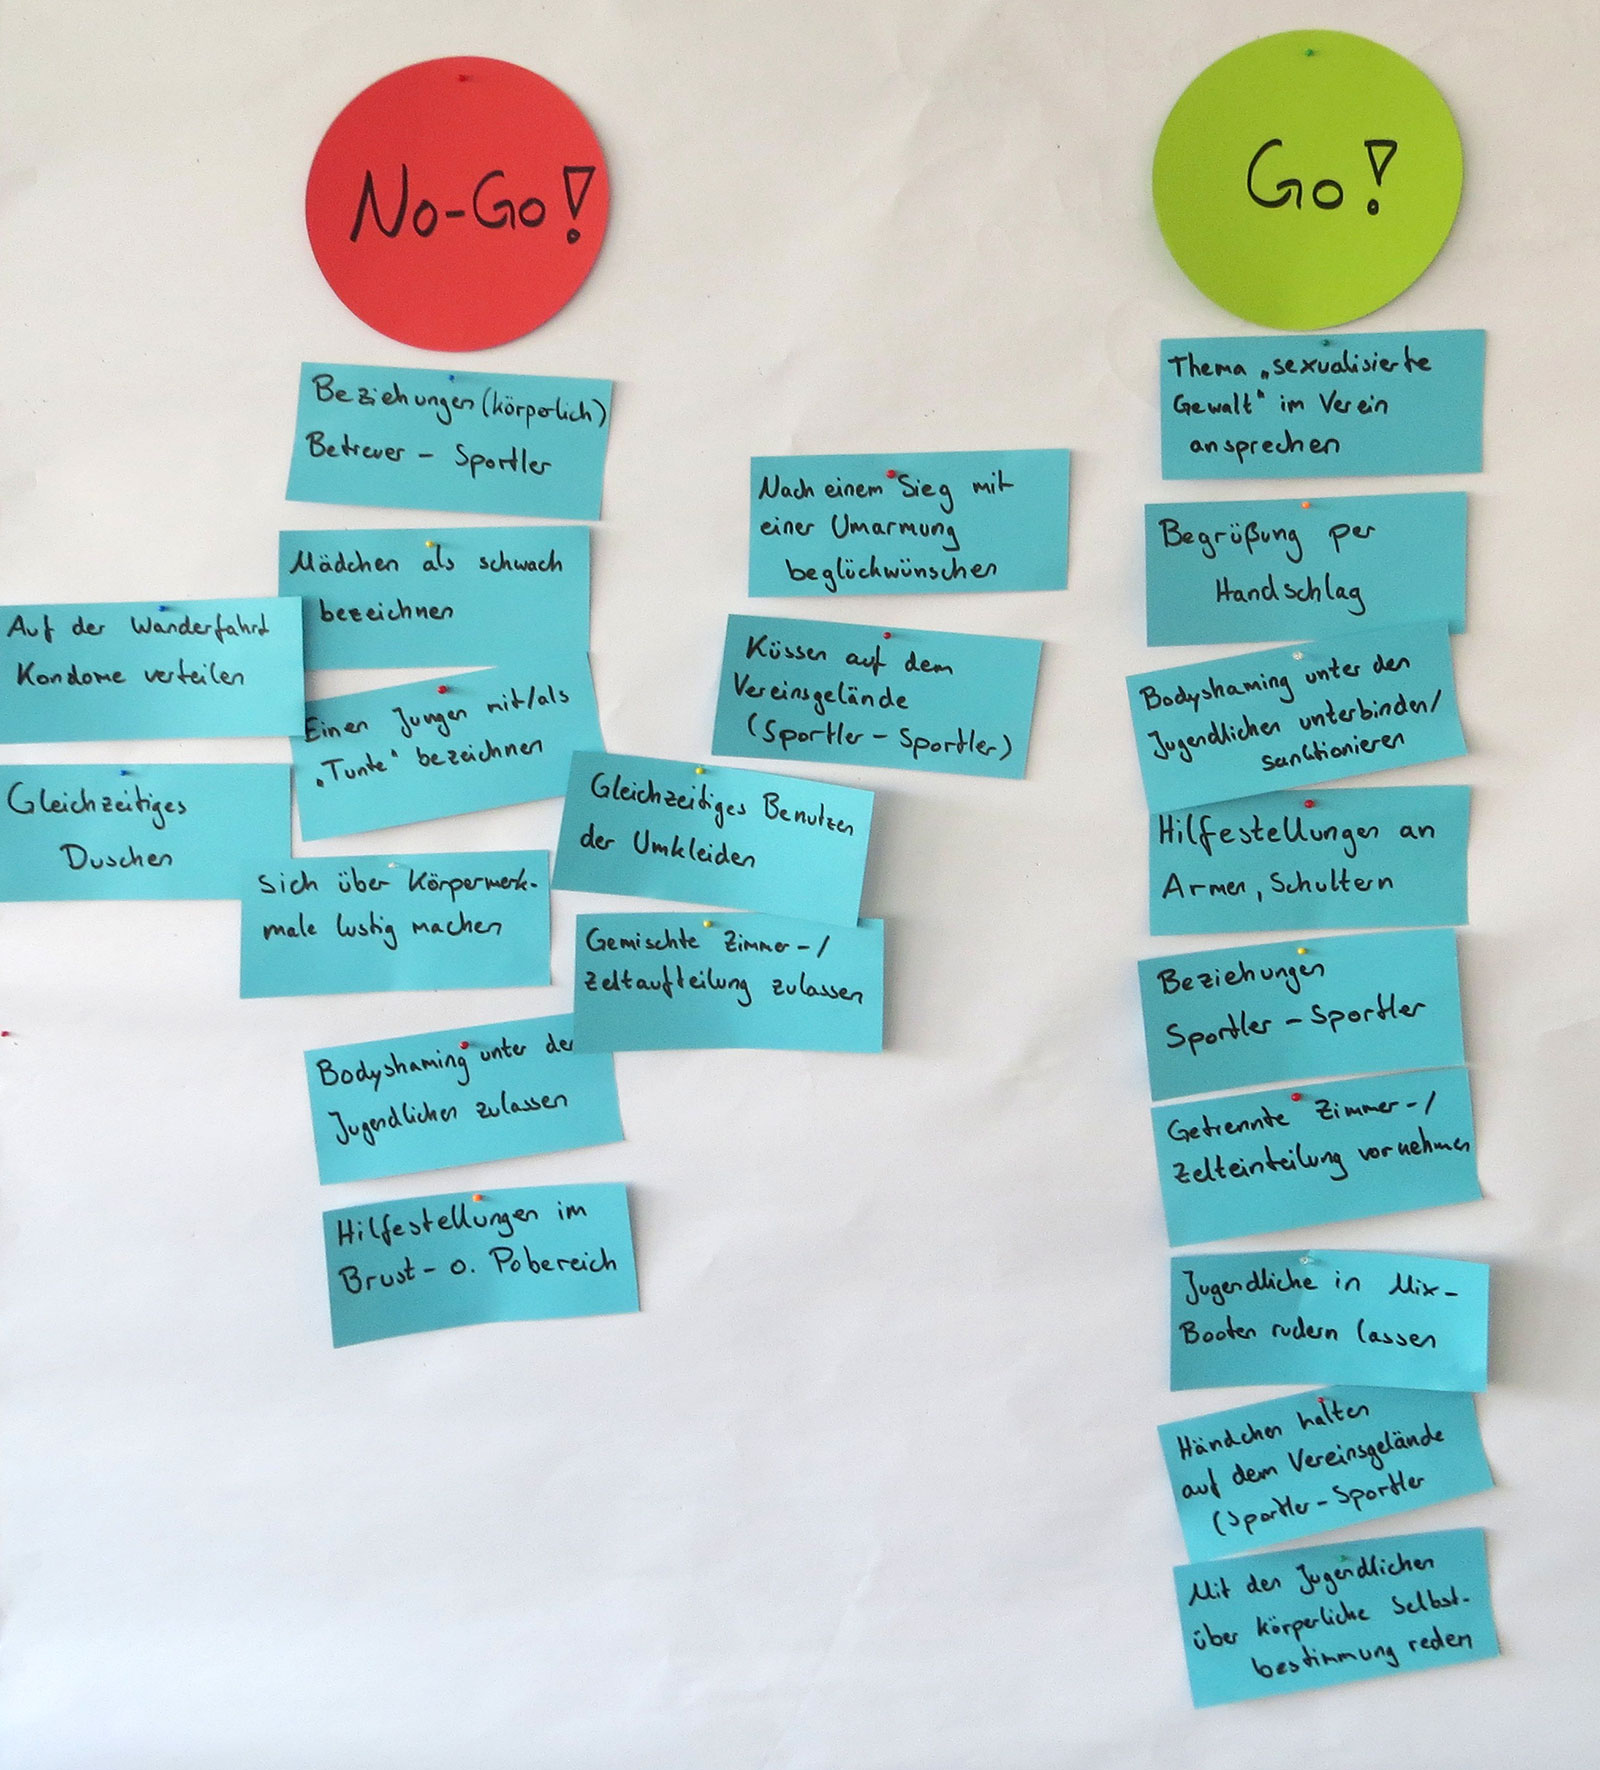 No-Go!
Beziehungen (körperlich)
Betreuer - Sportler
Mädchen als schwach
bezeichnen
Auf der Wanderfahrt
Kondome verteilen
Einen Jungen mit/als
„Tunte" bezeichnen
Gleichzeitiges
Duschen
Sich über Körpermerk-
male lustig machen
Bodyshaming unter den
Jugendlichen zulassen
Hilfestellungen im
Brust- o. Pobereich
Nach einem Sieg mit
einer Umarmung
beglückwünschen
Küssen auf dem
Vereinsgelände
(Sportler - Sportler)
Gleichzeitiges Benutzen
der Umkleiden
Gemischte Zimmer-/
Zeltaufteilung zulassen
Go!
Thema „sexualisierte
Gewalt" im Verein
ansprechen
Begrüßung per
Handschlag
Bodyshaming unter den
Jugendlichen unterbinden/
sanktionieren
Hilfestellungen an
Armen, Schultern
Beziehungen
Sportler - Sportler
Getrennte Zimmer-/
Zelteinteilung vornehmen
Jugendliche in Mix-
Booten rudern lassen
Händchen halten
auf dem Vereinsgelände
(Sportler - Sportler
Mit den Jugendlichen
über körperliche Selbst-
bestimmung reden